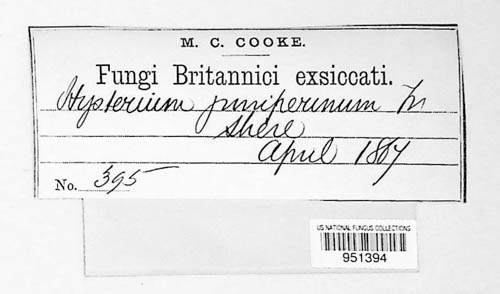 M. C. COOKE.
Fungi Britannici exsiccati.
Hysterium juniperinum Fr
Shere
April 1867
No. 395
US NATIONAL FUNGUS COLLECTIONS
951394